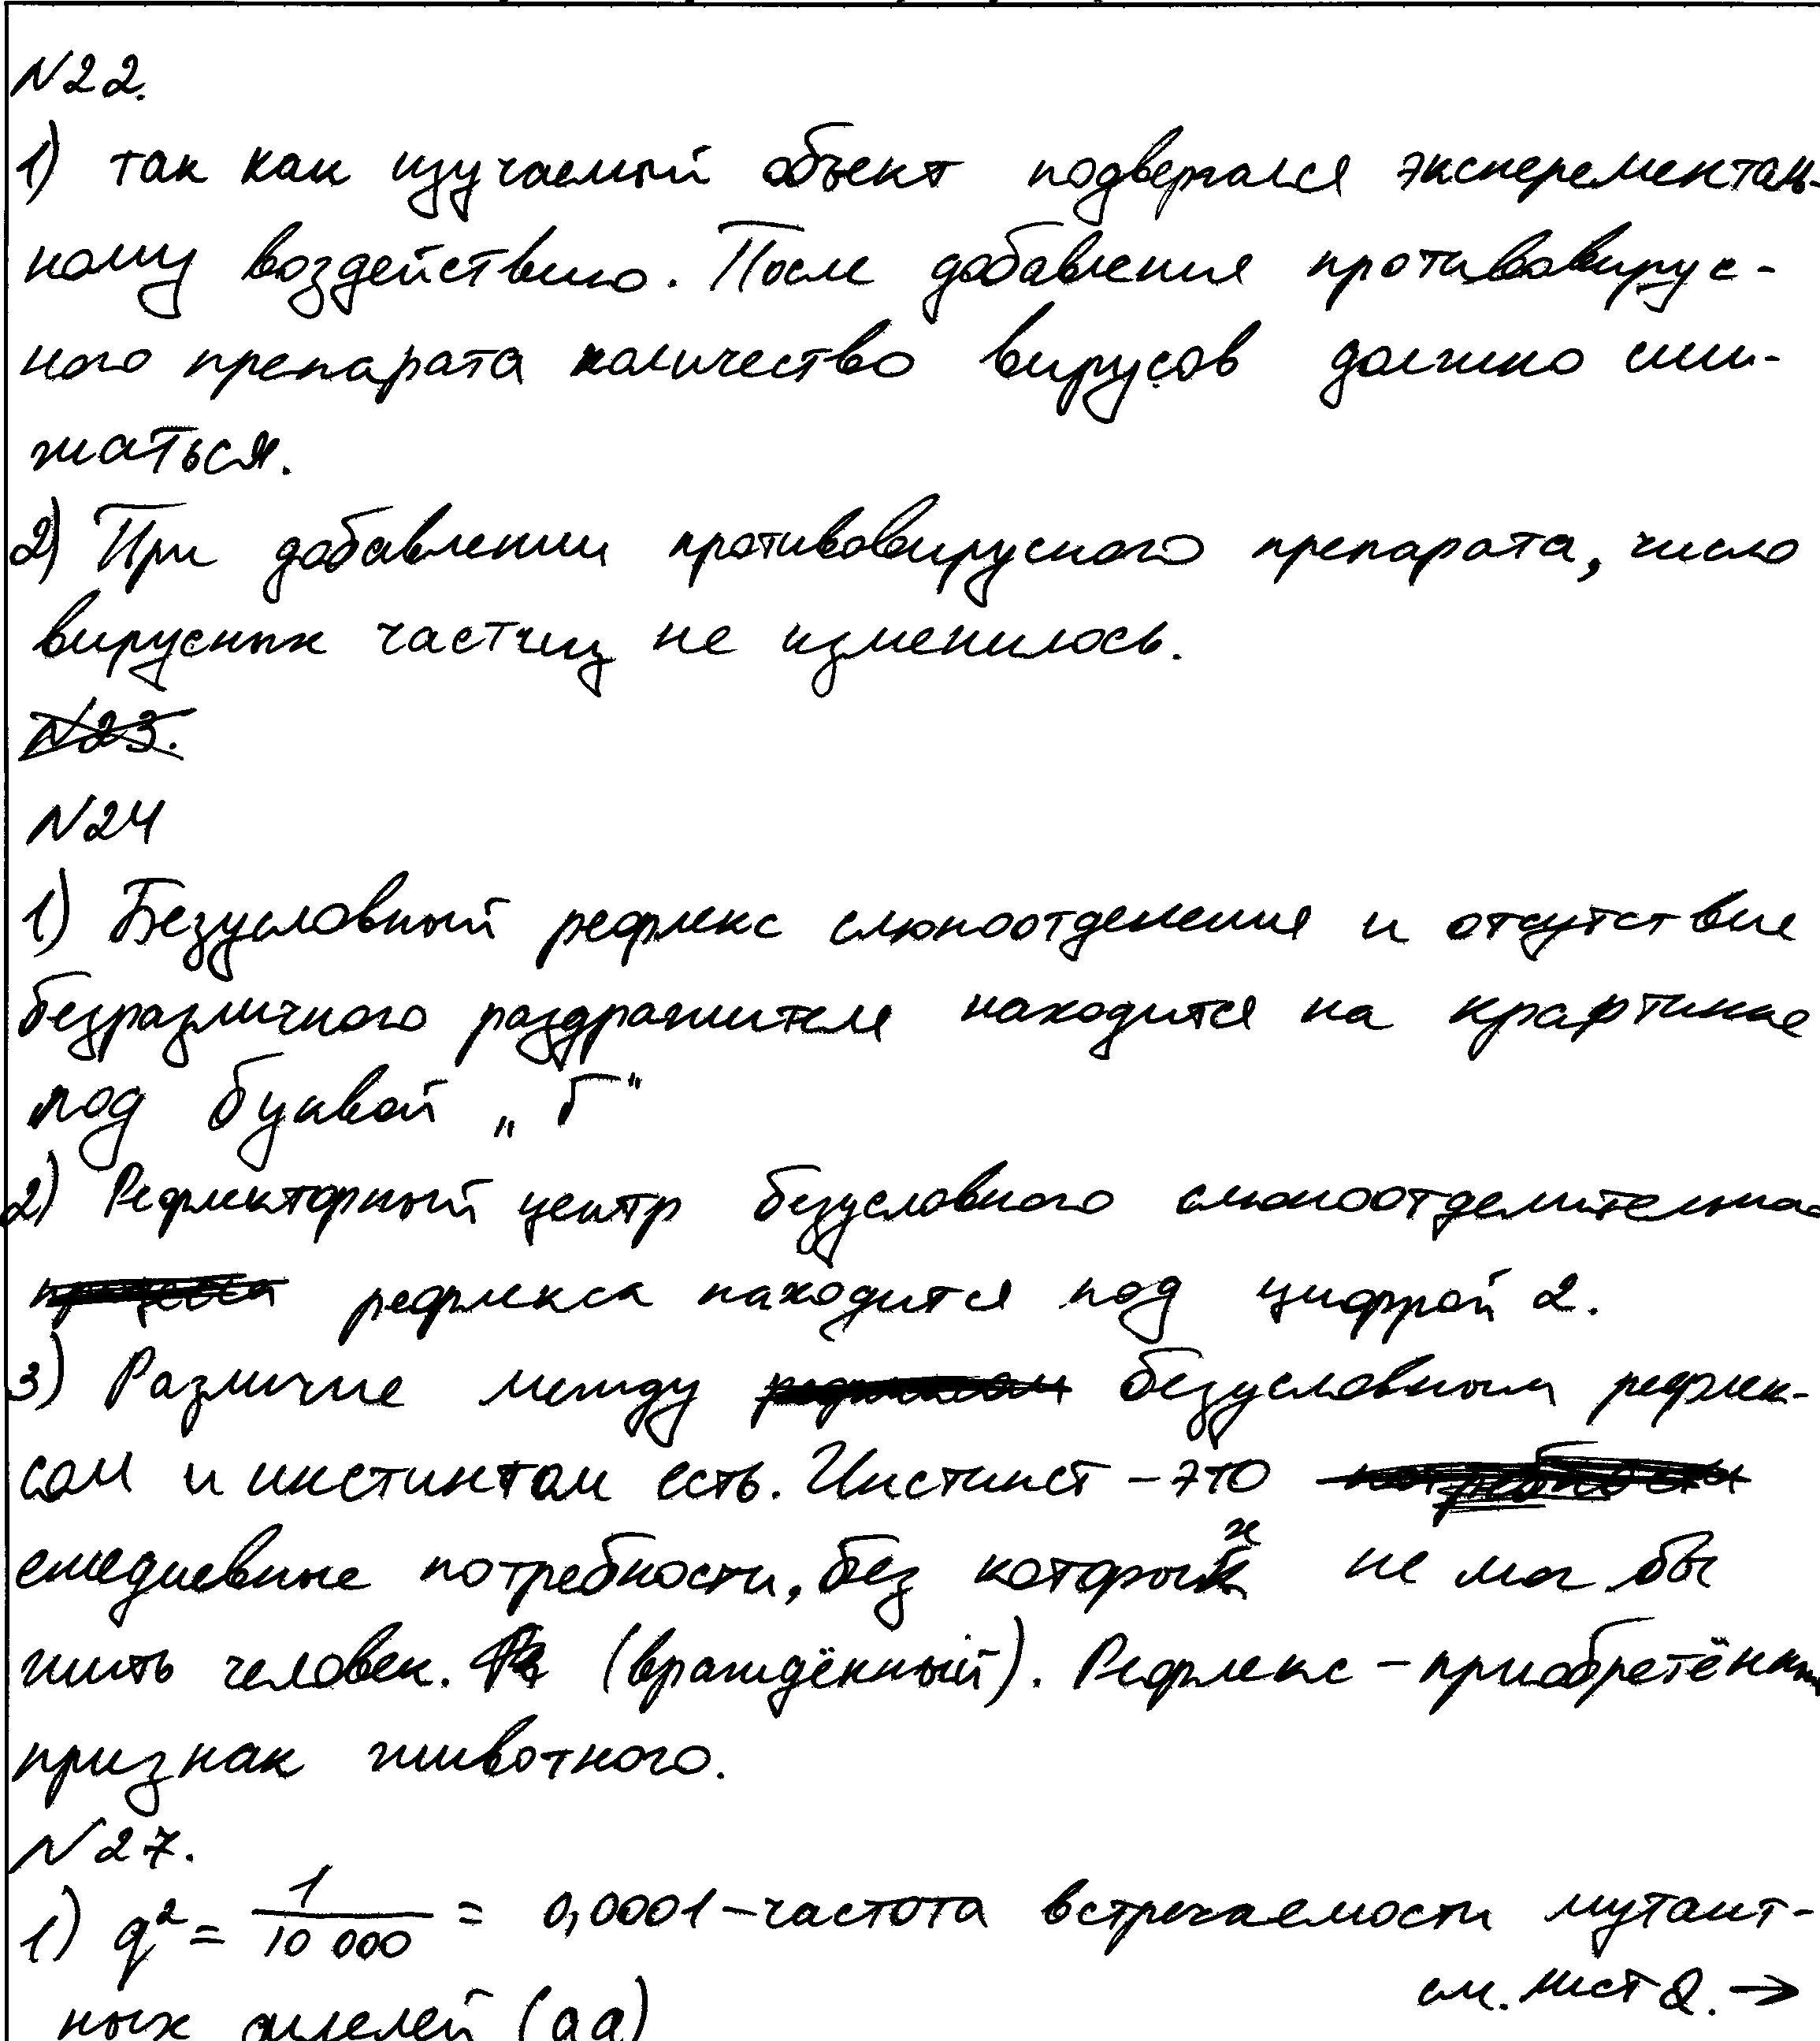 №22.
1) так как изучаемый объект подвергался эксперементаль-
ному воздействию. После добавления противовирус-
ного препарата количество вирусов должно сни-
жаться.
2) При добавлении противовирусного препарата, число
вирусных частиц не изменилось.
№23.
№24
1) Безусловный рефлекс слюноотделения и отсутствие
безразличного раздражителя находится на крартинке
под буквой „Г"
2) Рефлекторный центр безусловного слюноотделительного
рефлекса находится под цифрой 2.
3) Различие между безусловным рефлек-
сом и инстинтом есть. Инстинст - это
ежедневные потребности, без которых не мог бы
жить человек. (врождённый). Рефлекс - приобретённый
признак животного.
№27.
1) q² = 1/10 000 = 0,0001 - частота встречаемости мутант-
см. лист 2. →
ных аллелей (aa)